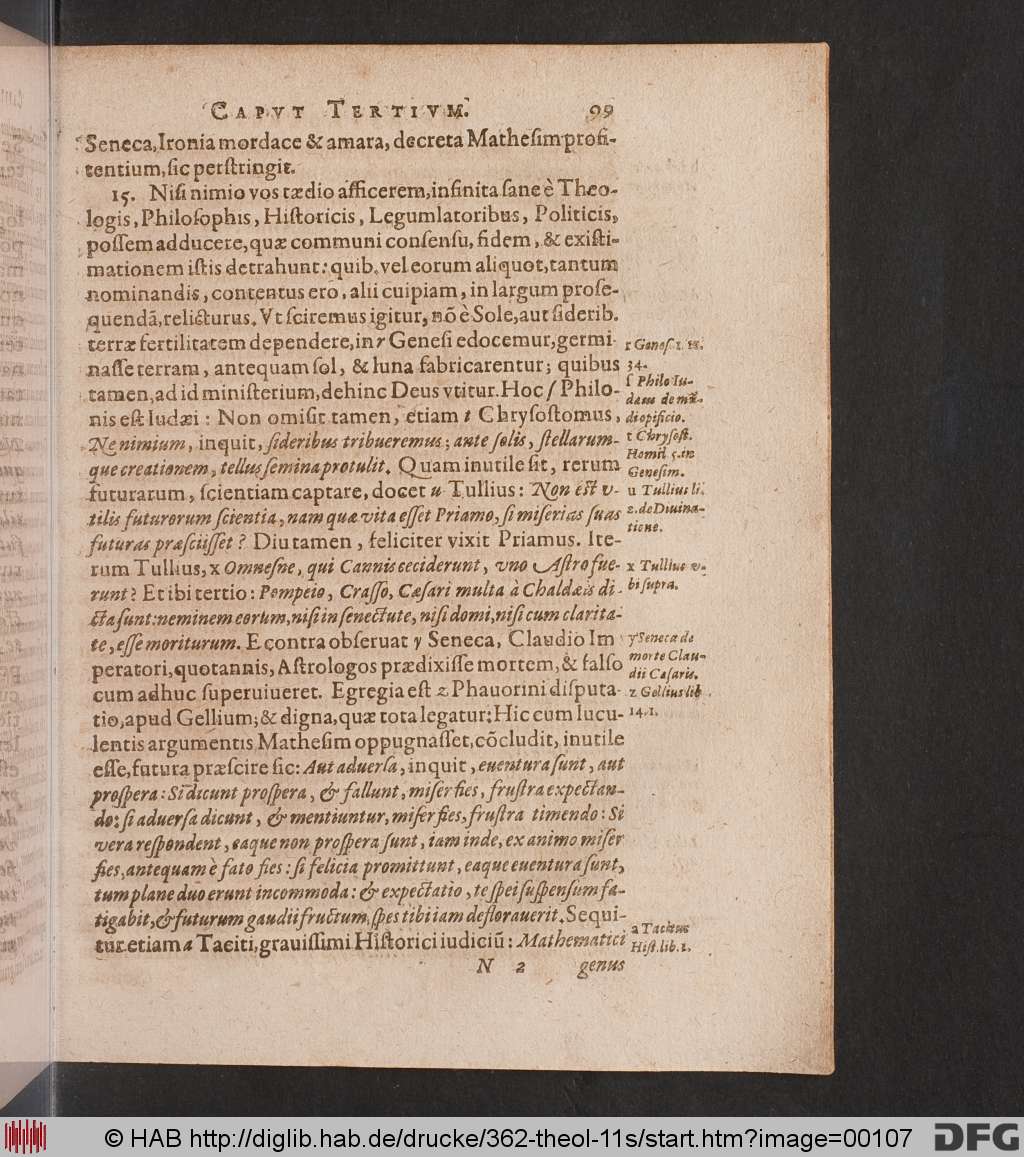 CAPVT TERTIVM. 99
Seneca, Ironia mordace & amara, decreta Mathesim profi-
tentium, sic perstringit.
15. Nisi nimio vos tædio afficerem, infinita sane è Theo-
logis, Philosophis, Historicis, Legumlatoribus, Politicis,
possem adducere, quæ communi consensu, fidem, & existi-
mationem istis detrahunt: quib. vel eorum aliquot, tantum
nominandis, contentus ero, alii cuipiam, in largum prose-
quendā, relicturus. Vt sciremus igitur, nō è Sole, aut siderib.
terræ fertilitatem dependere, in r Genesi edocemur, germi-
nasse terram, antequam sol, & luna fabricarentur; quibus
tamen, ad id ministerium, dehinc Deus vtitur. Hoc s Philo-
nis est Iudæi: Non omisit tamen, etiam t Chrysostomus,
Ne nimium, inquit, sideribus tribueremus; ante solis, stellarum-
que creationem, tellus semina protulit. Quam inutile sit, rerum
futurarum, scientiam captare, docet u Tullius: Non est v-
tilis futurorum scientia, nam quæ vita esset Priamo, si miserias suas
futuras præsciisset? Diu tamen, feliciter vixit Priamus. Ite-
rum Tullius, x Omnesne, qui Cannis ceciderunt, vno Astro fue-
runt? Et ibi tertio: Pompeio, Crasso, Cæsari multa à Chaldæis di-
cta sunt: neminem eorum, nisi in senectute, nisi domi, nisi cum clarita-
te, esse moriturum. E contra obseruat y Seneca, Claudio Im
peratori, quotannis, Astrologos prædixisse mortem, & falso
cum adhuc superuiueret. Egregia est z Phauorini disputa-
tio, apud Gellium; & digna, quæ tota legatur: Hic cum lucu-
lentis argumentis Mathesim oppugnasset, cōcludit, inutile
esse, futura præscire sic: Aut aduersa, inquit, euentura sunt, aut
prospera: Si dicunt prospera, & fallunt, miser fies, frustra expectan-
do: si aduersa dicunt, & mentiuntur, miser fies, frustra timendo: Si
vera respondent, eaque non prospera sunt, iam inde, ex animo miser
fies, antequam è fato fies: si felicia promittunt, eaque euentura sunt,
tum plane duo erunt incommoda: & expectatio, te spei suspensum fa-
tigabit, & futurum gaudii fructum, spes tibi iam deflorauerit. Sequi-
tur etiam a Taciti, grauissimi Historici iudiciū: Mathematici
N 2 genus
r Genes. 1. 11.
34.
s Philo Iu-
dæus de mū-
di opificio.
t Chrysost.
Homil. 5. in
Genesim.
u Tullius li.
2. de Diuina-
tione.
x Tullius v-
bi supra.
y Seneca de
morte Clau-
dii Cæsaris.
z Gellius lib
14. 1.
a Tacitus
Hist. lib. 1.
© HAB http://diglib.hab.de/drucke/362-theol-11s/start.htm?image=00107 DFG